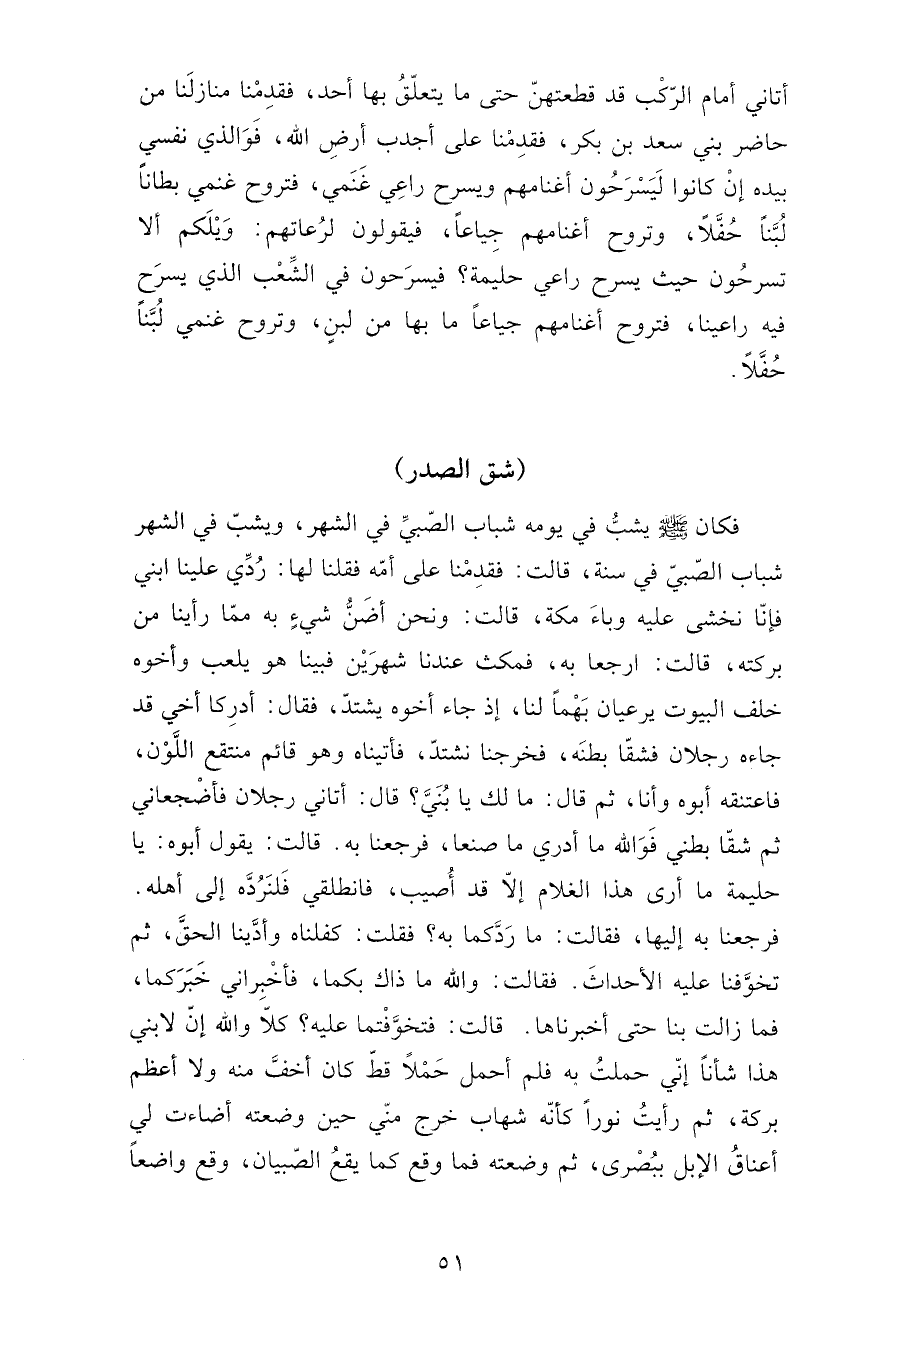 أتاني أمام الرّكْب قد قطعتهنّ حتى ما يتعلّقُ بها أحد، فقدِمْنا منازلَنا من
حاضر بني سعد بن بكر، فقدِمْنا على أجدب أرضِ الله، فَوَالذي نفسي
بيده إنْ كانوا لَيَسْرَحُون أغنامهم ويسرح راعِي غَنَمي، فتروح غنمي بطاناً
لُبَّناً حُفَّلاً، وتروح أغنامهم جِياعاً، فيقولون لرُعاتهم: وَيْلَكم ألا
تسرحُون حيث يسرح راعي حليمة؟ فيسرَحون في الشِّعْب الذي يسرَح
فيه راعينا، فتروح أغنامهم جياعاً ما بها من لبنٍ، وتروح غنمي لُبَّناً
حُفَّلاً.
(شق الصدر)
فكان ﷺ يشبُّ في يومه شباب الصّبيِّ في الشهر، ويشبّ في الشهر
شباب الصّبيّ في سنة، قالت: فقدِمْنا على أمّه فقلنا لها: رُدِّي علينا ابني
فإنّا نخشى عليه وباءَ مكة، قالت: ونحن أضَنُّ شيءٍ به ممّا رأينا من
بركته، قالت: ارجعا به، فمكث عندنا شهرَيْن فبينا هو يلعب وأخوه
خلف البيوت يرعيان بَهْماً لنا، إذ جاء أخوه يشتدّ، فقال: أدرِكا أخي قد
جاءه رجلان فشقّا بطنَه، فخرجنا نشتدّ، فأتيناه وهو قائم منتقع اللَّوْن،
فاعتنقه أبوه وأنا، ثم قال: ما لك يا بُنَيَّ؟ قال: أتاني رجلان فأضْجعاني
ثم شقّا بطني فَوَالله ما أدري ما صنعا، فرجعنا به. قالت: يقول أبوه: يا
حليمة ما أرى هذا الغلام إلاّ قد أُصيب، فانطلقي فَلنَرُدَّه إلى أهله.
فرجعنا به إليها، فقالت: ما رَدَّكما به؟ فقلت: كفلناه وأدَّينا الحقَّ، ثم
تخوَّفنا عليه الأحداثَ. فقالت: والله ما ذاك بكما، فأخْبِراني خَبَرَكما،
فما زالت بنا حتى أخبرناها. قالت: فتخوَّفْتما عليه؟ كلاّ والله إنّ لابني
هذا شأناً إنّي حملتُ به فلم أحمل حَمْلاً قطّ كان أخفَّ منه ولا أعظم
بركة، ثم رأيتُ نوراً كأنّه شهاب خرج منّي حين وضعته أضاءت لي
أعناقُ الإبل ببُصْرى، ثم وضعته فما وقع كما يقعُ الصّبيان، وقع واضعاً
٥١